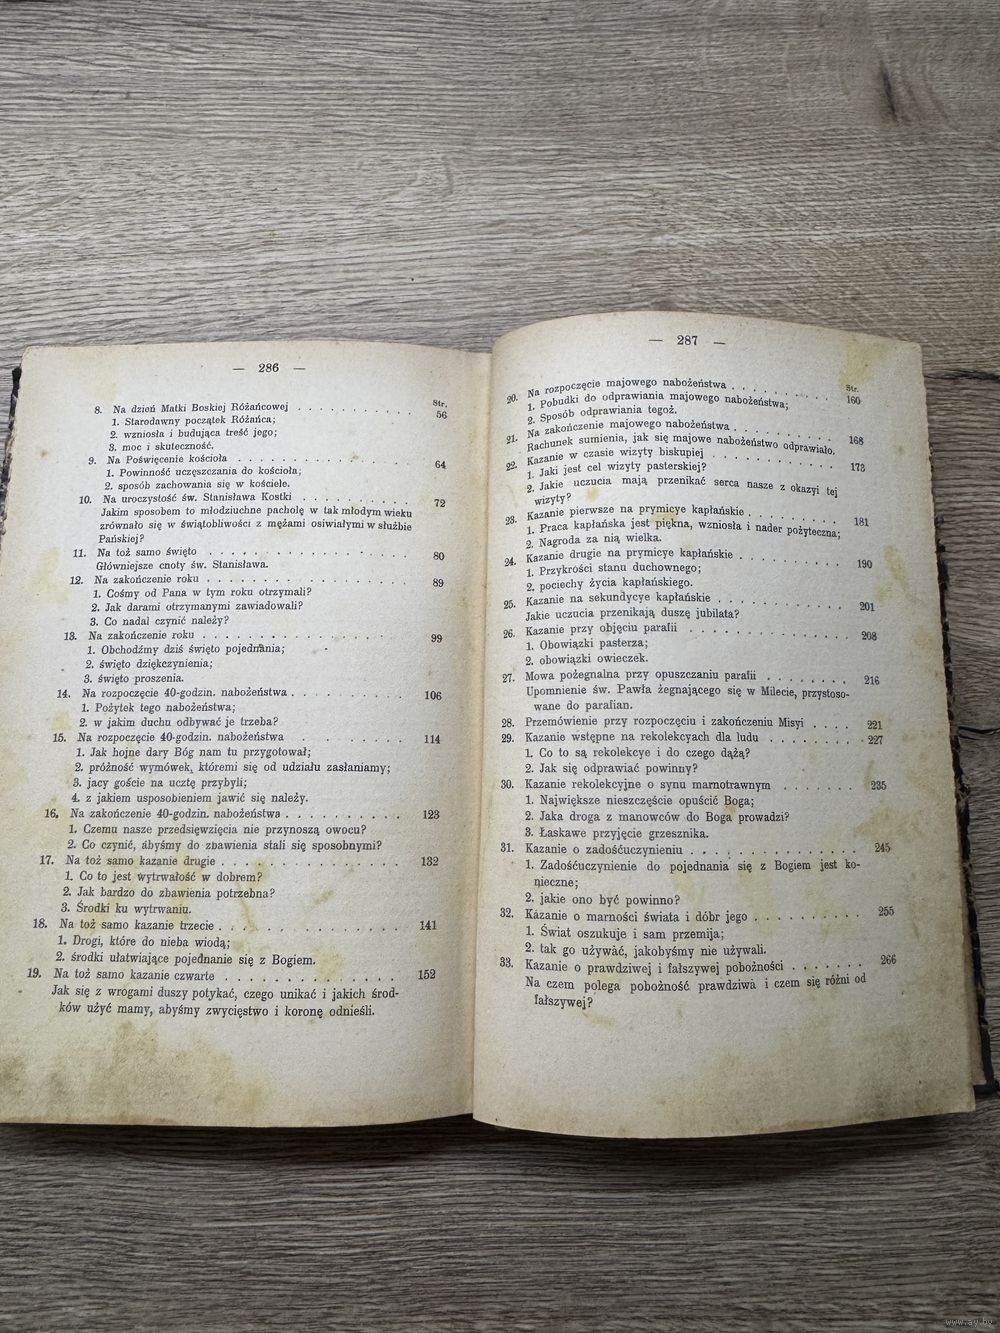 — 286 —
Str.
8. Na dzień Matki Boskiej Różańcowej . . . . . . . . . . 56
1. Starodawny początek Różańca;
2. wzniosła i budująca treść jego;
3. moc i skuteczność.
9. Na Poświęcenie kościoła . . . . . . . . . . 64
1. Powinność uczęszczania do kościoła;
2. sposób zachowania się w kościele.
10. Na uroczystość św. Stanisława Kostki . . . . . . . . 72
Jakim sposobem to młodziuchne pacholę w tak młodym wieku
zrównało się w świątobliwości z mężami osiwiałymi w służbie
Pańskiej?
11. Na toż samo święto . . . . . . . . . . 80
Główniejsze cnoty św. Stanisława.
12. Na zakończenie roku . . . . . . . . . . 89
1. Cośmy od Pana w tym roku otrzymali?
2. Jak darami otrzymanymi zawiadowali?
3. Co nadal czynić należy?
13. Na zakończenie roku . . . . . . . . . . 99
1. Obchodźmy dziś święto pojednania;
2. święto dziękczynienia;
3. święto proszenia.
14. Na rozpoczęcie 40-godzin. nabożeństwa . . . . . . . . 106
1. Pożytek tego nabożeństwa;
2. w jakim duchu odbywać je trzeba?
15. Na rozpoczęcie 40-godzin. nabożeństwa . . . . . . . . 114
1. Jak hojne dary Bóg nam tu przygotował;
2. próżność wymówek, któremi się od udziału zasłaniamy;
3. jacy goście na ucztę przybyli;
4. z jakiem usposobieniem jawić się należy.
16. Na zakończenie 40-godzin. nabożeństwa . . . . . . . . 123
1. Czemu nasze przedsięwzięcia nie przynoszą owocu?
2. Co czynić, ábyśmy do zbawienia stali się sposobnymi?
17. Na toż samo kazanie drugie . . . . . . . . . . 132
1. Co to jest wytrwałość w dobrem?
2. Jak bardzo do zbawienia potrzebna?
3. Środki ku wytrwaniu.
18. Na toż samo kazanie trzecie . . . . . . . . . . 141
1. Drogi, które do nieba wiodą;
2. środki ułatwiające pojednanie się z Bogiem.
19. Na toż samo kazanie czwarte . . . . . . . . . . 152
Jak się z wrogami duszy potykać, czego unikać i jakich środ-
ków użyć mamy, abyśmy zwycięstwo i koronę odnieśli.
— 287 —
Str.
20. Na rozpoczęcie majowego nabożeństwa . . . . . . . . 160
1. Pobudki do odprawiania majowego nabożeństwa;
2. Sposób odprawiania tegoż.
21. Na zakończenie majowego nabożeństwa . . . . . . . . 168
Rachunek sumienia, jak się majowe nabożeństwo odprawiało.
22. Kazanie w czasie wizyty biskupiej . . . . . . . . 173
1. Jaki jest cel wizyty pasterskiej?
2. Jakie uczucia mają przenikać serca nasze z okazyi tej
wizyty?
23. Kazanie pierwsze na prymicye kapłańskie . . . . . . . . 181
1. Praca kapłańska jest piękna, wzniosła i nader pożyteczna;
2. Nagroda za nią wielka.
24. Kazanie drugie na prymicye kapłańskie . . . . . . . . 190
1. Przykrości stanu duchownego;
2. pociechy życia kapłańskiego.
25. Kazanie na sekundycye kapłańskie . . . . . . . . 201
Jakie uczucia przenikają duszę jubilata?
26. Kazanie przy objęciu parafii . . . . . . . . . . 208
1. Obowiązki pasterza;
2. obowiązki owieczek.
27. Mowa pożegnalna przy opuszczaniu parafii . . . . . . . 216
Upomnienie św. Pawła żegnającego się w Milecie, przystoso-
wane do parafian.
28. Przemówienie przy rozpoczęciu i zakończeniu Misyi . . . . 221
29. Kazanie wstępne na rekolekcyach dla ludu . . . . . . . 227
1. Co to są rekolekcye i do czego dążą?
2. Jak się odprawiać powinny?
30. Kazanie rekolekcyjne o synu marnotrawnym . . . . . . . 235
1. Największe nieszczęście opuścić Boga;
2. Jaka droga z manowców do Boga prowadzi?
3. Łaskawe przyjęcie grzesznika.
31. Kazanie o zadośćuczynieniu . . . . . . . . . . 245
1. Zadośćuczynienie do pojednania się z Bogiem jest ko-
nieczne;
2. jakie ono być powinno?
32. Kazanie o marności świata i dóbr jego . . . . . . . . 255
1. Świat oszukuje i sam przemija;
2. tak go używać, jakobyśmy nie używali.
33. Kazanie o prawdziwej i fałszywej pobożności . . . . . . 266
Na czem polega pobożność prawdziwa i czem się różni od
fałszywej?
www.ay.by